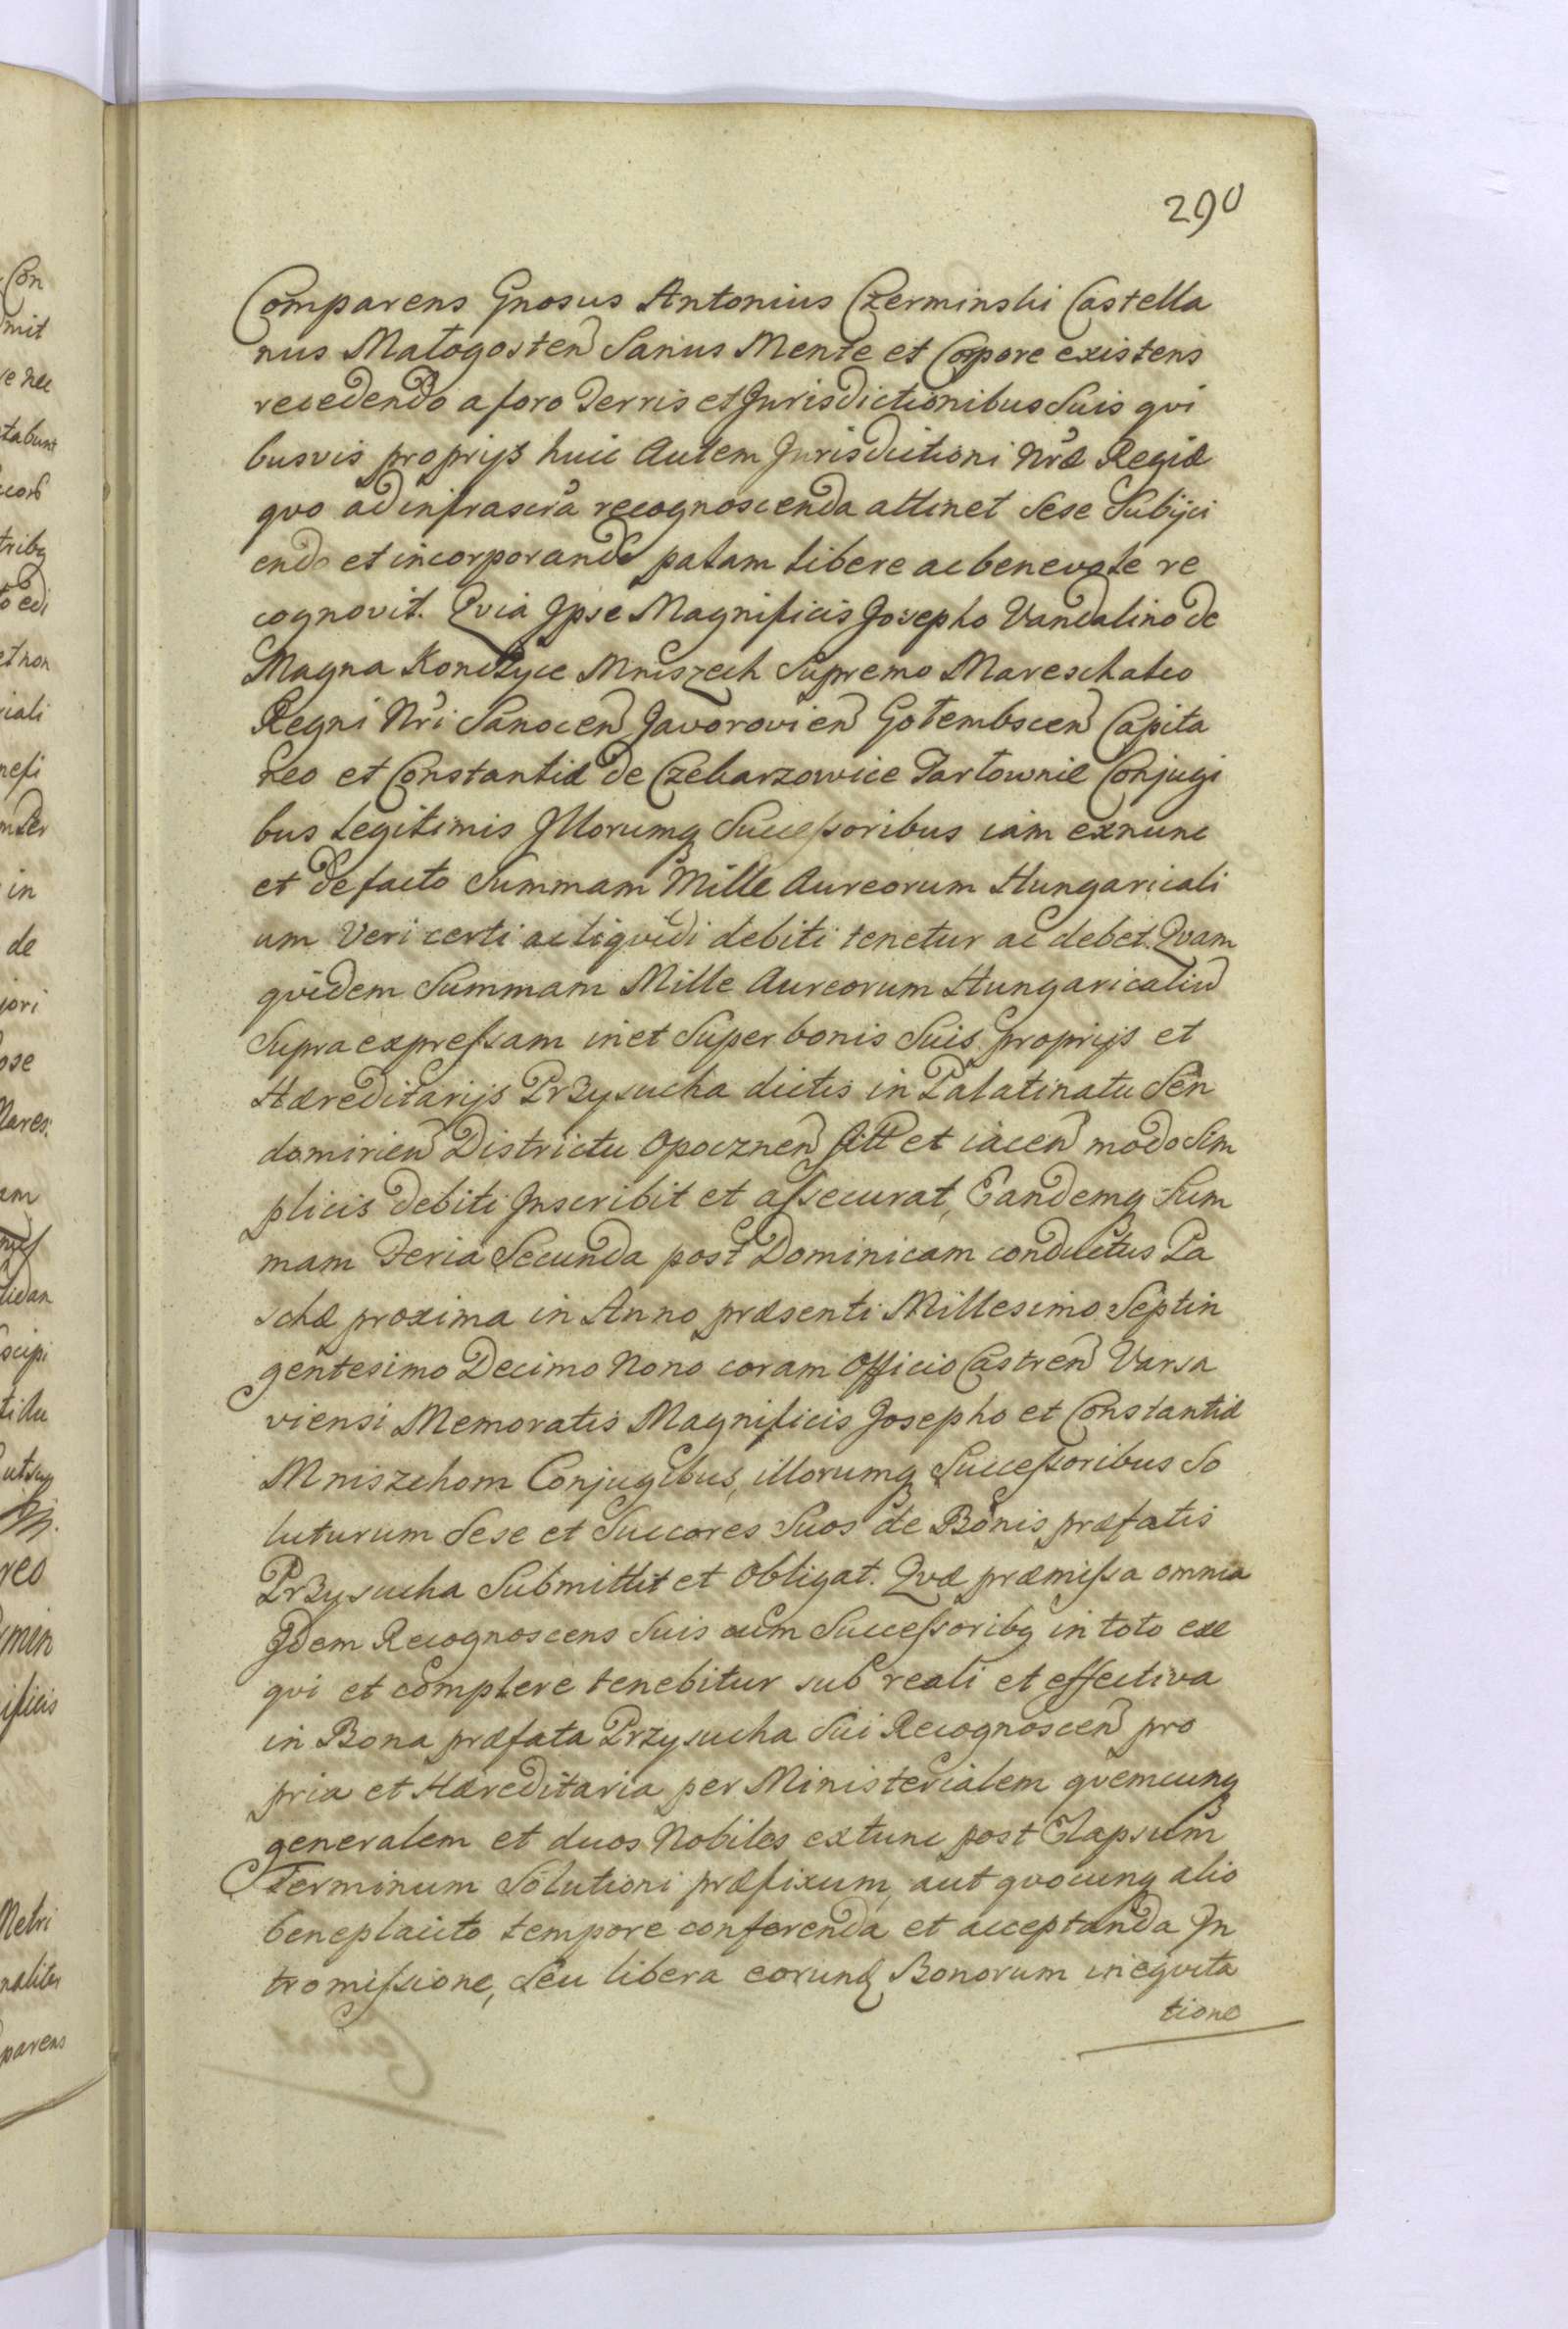 290
Comparens Gnosus Antonius Czerminski Castella
nus Małogosten Sanus Mente et Corpore existens
recedendo a foro Terris et Jurisdictionibus Suis qvi
busvis proprijs huic Autem Jurisdictioni Nræ Regiæ
qvo ad infrascra recognoscenda attinet Sese Subijci
endo et incorporando palam libere ac benevole re
cognovit. Qvia Ipse Magnificis Josepho Vandalino de
Magna Konczyce Mniszech Supremo Mareschalco
Regni Nri Sanocen Javorovien Gołembscen Capita
neo et Constantiæ de Czekarzowice Tarłownie Conjugi
bus Legitimis Illorumq Successoribus iam exnunc
et de facto Summam Mille Aureorum Hungaricali
um Veri certi ac liqvidi debiti tenetur ac debet. Qvam
qvidem Summam Mille Aureorum Hungaricaliu
Supra expressam in et Super bonis Suis proprijs et
Hæreditarijs Przysucha dictis in Palatinatu Sen
domirien Districtu Opocznen sitt et iacen modo Sim
plicis debiti Inscribit et assecurat, Eandemq Sum
mam Feria Secunda post Dominicam conductus Pa
schæ proxima in Anno præsenti Millesimo Septin
gentesimo Decimo Nono coram Officio Castren Varsa
viensi Memoratis Magnificis Josepho et Constantiæ
Mniszchom Conjugibus, illorumq Successoribus So
luturum Sese et Succores Suos de Bonis præfatis
Przysucha Submittit et Obligat. Qvæ præmissa omnia
Idem Recognoscens Suis cum Successoribq in toto exe
qvi et complere tenebitur sub reali et effectiva
in Bona præfata Przysucha Sui Recognoscen pro
pria et Hæreditaria per Ministerialem qvemcunq
generalem et duos Nobiles extunc post Elapsum
Terminum Solutioni præfixum, aut qvocunq alio
beneplacito tempore conferenda et acceptanda In
tromissione, Seu libera eorund Bonorum ineqvita
tione